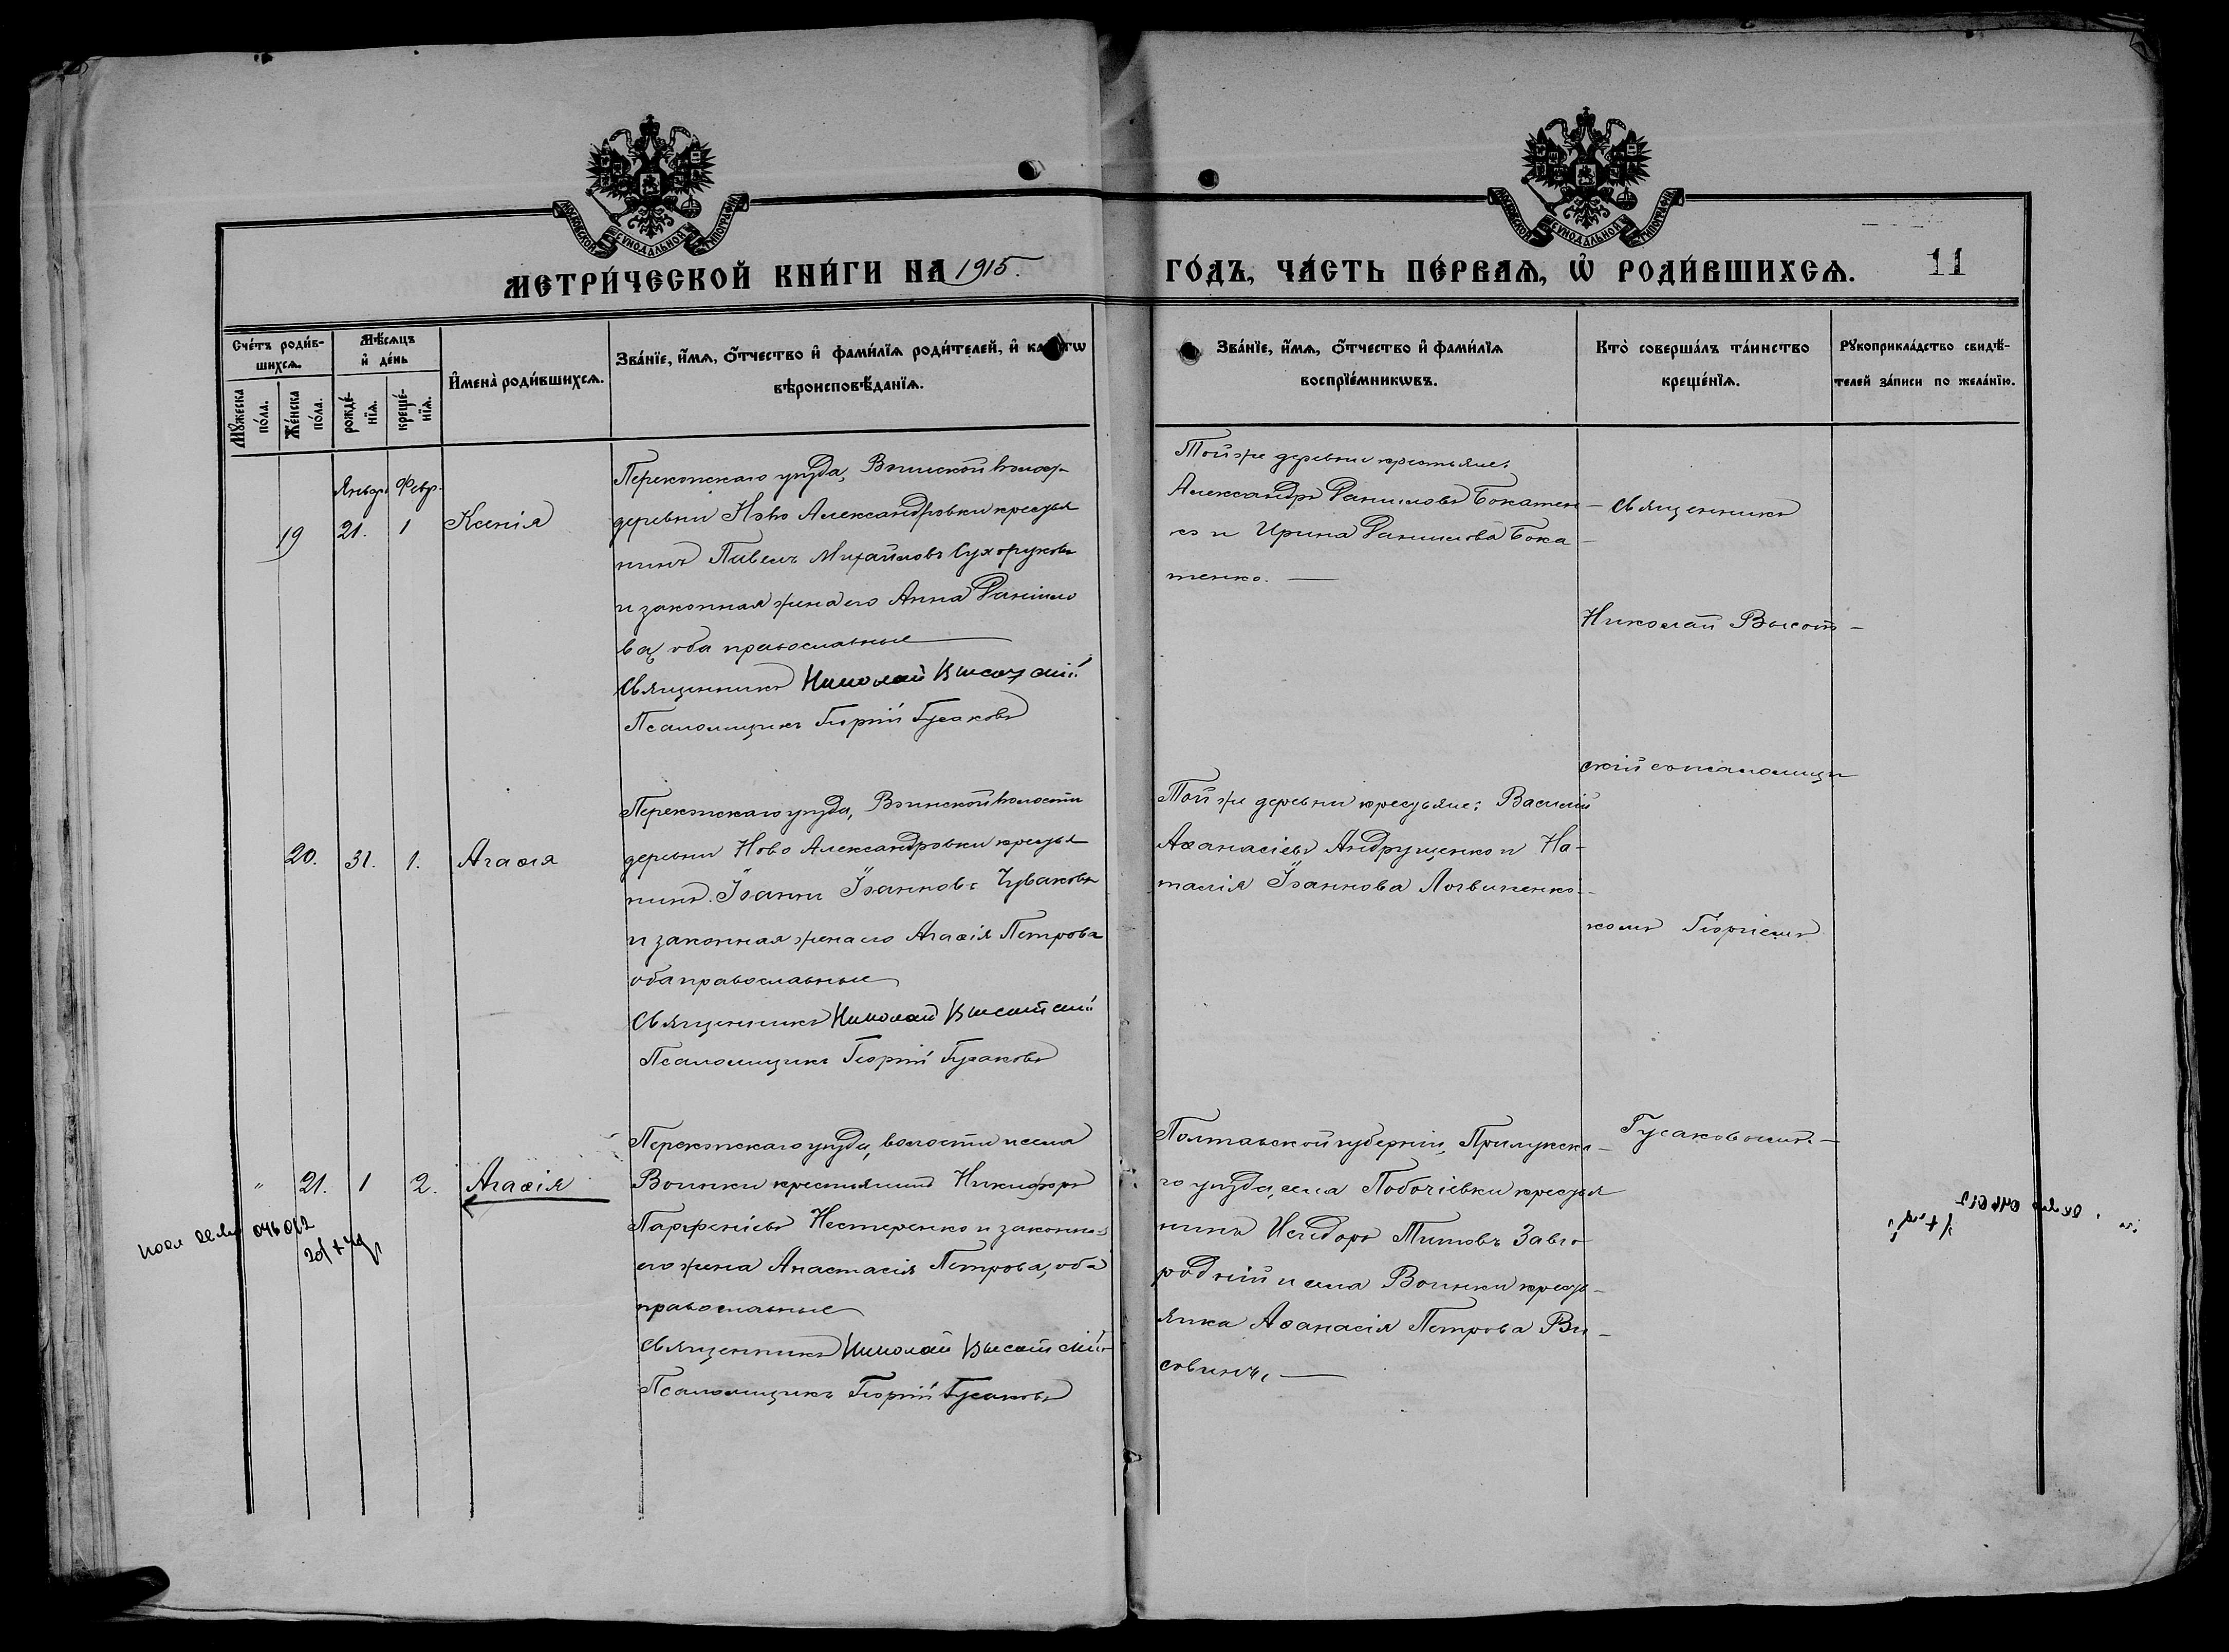 МОСКОВСКОЙ СУНОДАЛЬНОЙ ТИПОГРАФІИ
МОСКОВСКОЙ СУНОДАЛЬНОЙ ТИПОГРАФІИ
МЕТРИ́ЧЕСКОЙ КНИ́ГИ НА 1915.
ГО́ДЪ, ЧА́СТЬ ПЕ́РВАѦ, Ѡ҆ РОДИ́ВШИХСѦ.
11
Сче́тъ роди́в-
шихсѧ.
Мꙋ́жеска
по́ла.
Же́нска
по́ла.
Мѣ́сѧцъ
и҆ де́нь
рожде́-
нїѧ.
креще́-
нїѧ.
И҆мена̀ роди́вшихсѧ.
Зва́нїе, и҆́мѧ, ѻ҆́тчество и҆ фами́лїѧ роди́телей, и҆
вѣроисповѣ́данїѧ.
Зва́нїе, и҆́мѧ, ѻ҆́тчество и҆ фами́лїѧ
воспрїе́мникѡвъ.
Кто̀ соверша́лъ та́инство
креще́нїѧ.
Рꙋкоприкла́дство свидѣ́-
телей за́писи по жела́нїю.
Январ. Февр.
19 21. 1 Ксенія
Перекопскаго уѣзда, Воинской волост
деревни Ново Александровки крестья
нинъ Павелъ Михайловъ Сухоруковъ
и законная жена его Анна Данiило
ва, оба православные
Священникъ Николай Высотскій
Псаломщикъ Гіоргій Гусаковъ
Той же деревни крестьяне:
Александръ Даниловъ Бокатен-
ко и Ирина Данилова Бока-
тенко.
Священникъ
Николай Высот-
скій со псаломщи
комъ Гіоргіемъ
Гусаковымъ.
20. 31. 1. Агаѳія
Перекопскаго уѣзда, Воинской волости
деревни Ново Александровки крестья
нинъ Іоаннъ Іоанновъ Чуваковъ
и законная жена его Агаѳія Петрова
оба православные
Священникъ Николай Высотскій
Псаломщикъ Гіоргій Гусаковъ
Той же деревни крестьяне: Василій
Аѳанасіевъ Андрущенко и На-
талія Іоаннова Логвиненко
" 21. 1 2. Агаѳія
Перекопскаго уѣзда, волости и села
Воинки крестьянинъ Никифоръ
Парфеніевъ Нестеренко и законная
его жена Анастасія Петрова, оба
православные
Священникъ Николай Высотскій
Псаломщикъ Гіоргій Гусаковъ
Полтавской губерніи, Прилукска-
го уѣзда, села Побочіевки крестья
нинъ Исидоръ Титовъ Завго-
родній и села Воинки кресть-
янка Аѳанасія Петрова